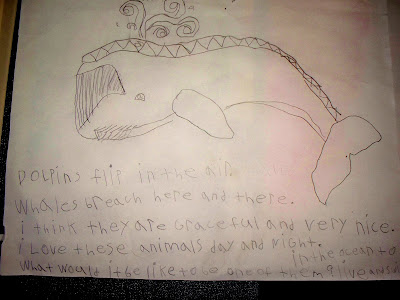 Dolpins flip in the air.
Whales breach here and there.
i think they are graceful and very nice.
i Love these animals day and night.
in the ocean to
What would it be like to be one of them live and